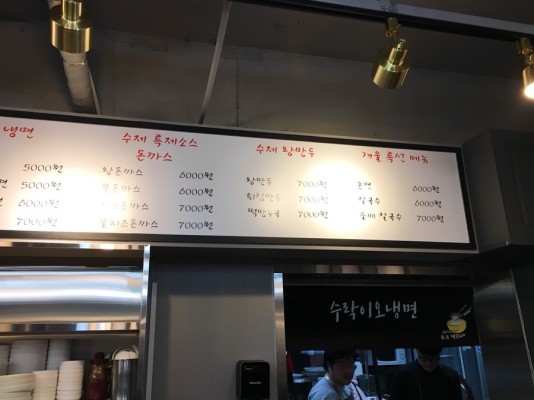 냉면
5000원
5000원
6000원
7000원
수제 특제소스
돈까스
왕돈까스 6000원
돈까스 6000원
치즈돈까스 7000원
불치즈돈까스 7000원
수제 왕만두
왕만두 7000원
튀김만두 7000원
떡만두국 7000원
겨울 특선 메뉴
온면 6000원
칼국수 6000원
들깨 칼국수 7000원
수락이오냉면